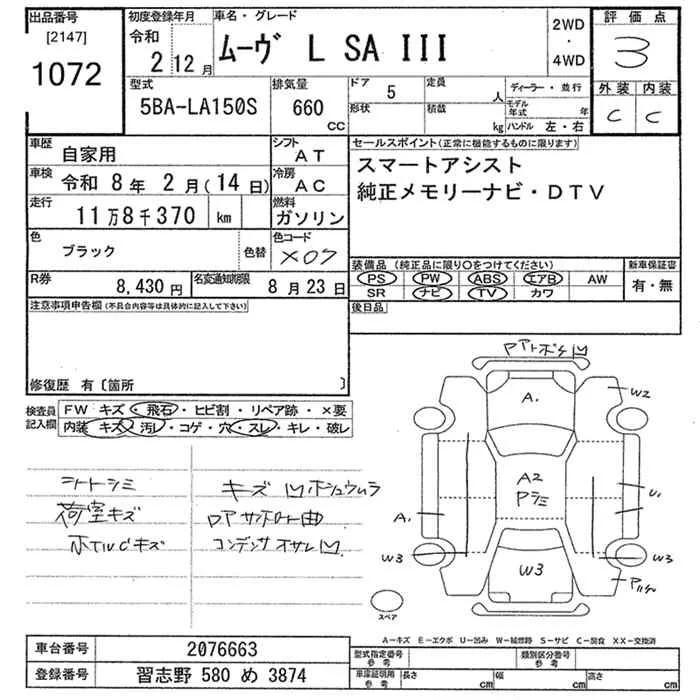 出品番号
[2147]
1072
初度登録年月
令和
2 12月
車名・グレード
ムーヴ L SA III
2WD
・
4WD
評価点
3
外装 内装
C C
型式
5BA-LA150S
排気量
660
CC
ドア 5
定員 人
形状
積載 kg
ディーラー・並行
モデル年式 年
ハンドル 左・右
車歴 自家用
シフト AT
車検 令和 8年 2月(14日)
冷房 AC
走行 11万8千370 km
燃料 ガソリン
色 ブラック
色替
色コード X07
R券 8,430円
名変通知期限 8月23日
セールスポイント(正常に機能するものに限ります)
スマートアシスト
純正メモリーナビ・DTV
装備品(純正品に限り○をつけてください)
PS PW ABS エアB AW
SR ナビ TV カワ
新車保証書
有・無
後日品
注意事項申告欄(不具合内容等は具体的に記入して下さい)
修復歴 有〔箇所 〕
検査員
記入欄
FW キズ・飛石・ヒビ割・リペア跡・×要
内装 キズ・汚レ・コゲ・穴・スレ・キレ・破レ
シートシミ
荷室キズ
ホイルCキズ
キズ凹
ロアサポート曲
コンデンサ オサレ凹
A.
W2
A2
Pシミ
U.
A.
W3
W3
W3
スペア
A−キズ E−エクボ U−凹み W−補修跡 S−サビ C−腐食 XX−交換済
車台番号 2076663
登録番号 習志野 580 め 3874
型式指定番号
参考
類別区分番号
参考
車庫証明用
参考
長さ cm
幅 cm
高さ cm